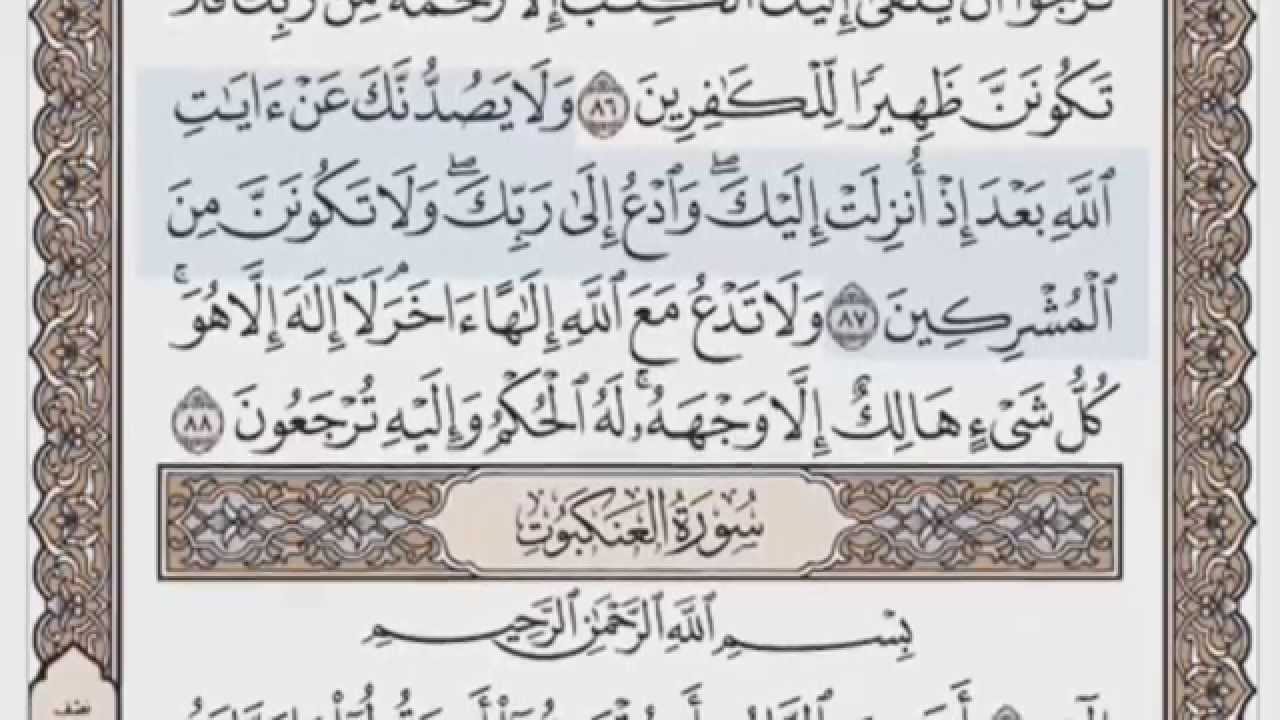 تَرْجُوٓا۟ أَن يُلْقَىٰٓ إِلَيْكَ ٱلْكِتَٰبُ إِلَّا رَحْمَةً مِّن رَّبِّكَ فَلَا
تَكُونَنَّ ظَهِيرًا لِّلْكَٰفِرِينَ ٨٦ وَلَا يَصُدُّنَّكَ عَنْ ءَايَٰتِ
ٱللَّهِ بَعْدَ إِذْ أُنزِلَتْ إِلَيْكَ ۖ وَٱدْعُ إِلَىٰ رَبِّكَ ۖ وَلَا تَكُونَنَّ مِنَ
ٱلْمُشْرِكِينَ ٨٧ وَلَا تَدْعُ مَعَ ٱللَّهِ إِلَٰهًا ءَاخَرَ ۘ لَآ إِلَٰهَ إِلَّا هُوَ ۚ
كُلُّ شَىْءٍ هَالِكٌ إِلَّا وَجْهَهُۥ ۚ لَهُ ٱلْحُكْمُ وَإِلَيْهِ تُرْجَعُونَ ٨٨
سُورَةُ العَنكَبُوتِ
بِسْمِ ٱللَّهِ ٱلرَّحْمَٰنِ ٱلرَّحِيمِ
نصف